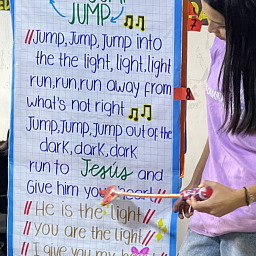 JUMP
//Jump, Jump, Jump into
the the light, light, light
run, run, run away from
what's not right
Jump, Jump, Jump out of the
dark, dark, dark
run to Jesús and
Give him your heart//
//He is the light//
//you are the light//
//I give you my